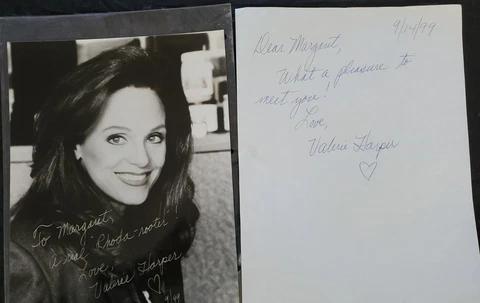 To Margaret,
A real "Rhoda-rooter"!
Love,
Valerie Harper
9/99
9/14/99
Dear Margaret,
What a pleasure to
meet you!
Love,
Valerie Harper